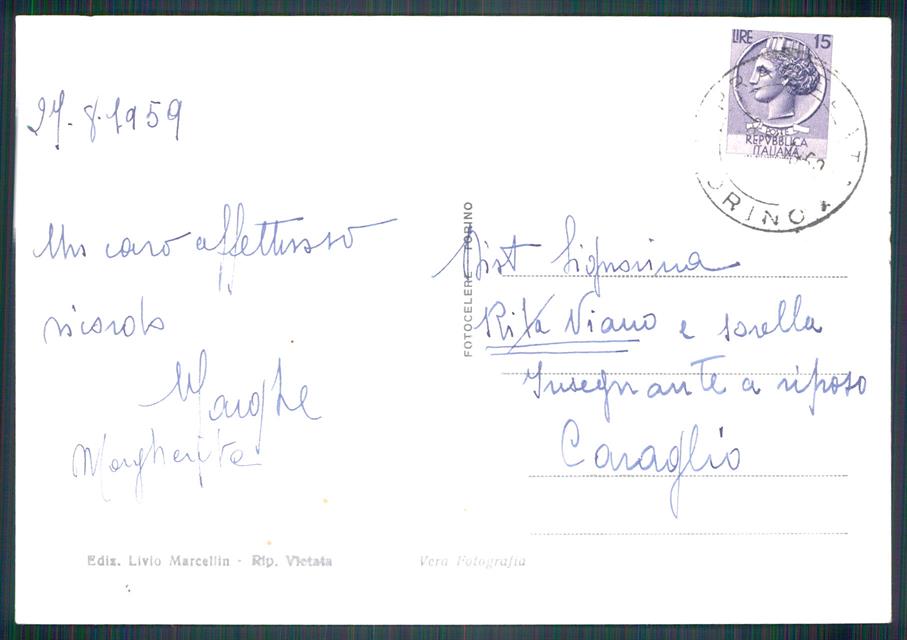 27.8.1959
Un caro affettuoso
ricordo
Marghe
Margherita
Ediz. Livio Marcellin - Rip. Vietata
Vera Fotografia
FOTOCELERE TORINO
LIRE 15
POSTE
REPVBBLICA
ITALIANA
ORINO
Gist Signorina
Rita Viano e sorella
Insegnante a riposo
Caraglio